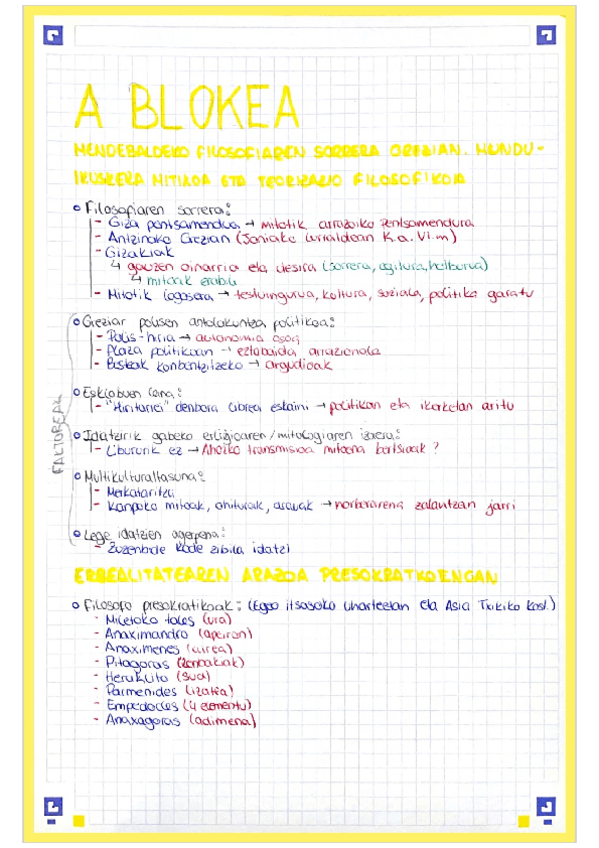 A BLOKEA
MENDEBALDEKO FILOSOFIAREN SORRERA GREZIAN. MUNDU-
IKUSKERA MITIKOA ETA TEORIZAZIO FILOSOFIKOA
Filosofiaren sorrera:
- Giza pentsamendua → mitotik arrazoiko pentsamendura
- Antzinako Grezian (Joniako lurraldean K.a. VI.m)
- Gizakiak
↳ gauzen oinarria eta (sorrera, egitura, helburua)
↳ mitoak erabili
- Mitotik logosera → testuingurua, kultura, soziala, politika garatu
FALTOREAK
Greziar polisen antolakuntza politikoa:
- Polis-hiria → autonomia osoa
- Plaza politikoan → eztabaida arrazionala
- Besteak konbentzitzeko → argudioak
Esklabuen lana:
- "Hiritarrei" denbora librea eskaini → politikan eta ikerketan aritu
Idatzirik gabeko erlijioaren/mitologiaren izaera:
- Libururik ez → Ahozko transmisioa mitoena bertsioak?
Multikulturaltasuna:
- Merkataritza
- Kanpoko mitoak, ohiturak, arauak → norberarena zalantzan jarri
Lege idatzien agerpena:
- Zuzenbide kode zibila idatzi
ERREALITATEAREN ARAZOA PRESOKRATIKOENGAN
Filosofo presokratikoak: (Egeo itsasoko uharteetan eta Asia Txikiko kost.)
- Miletoko tales (ura)
- Anaximandro (apeiron)
- Anaximenes (airea)
- Pitagoras (zenbakiak)
- Heraklito (sua)
- Parmenides (izatea)
- Empedocles (4 elementu)
- Anaxagoras (adimena)